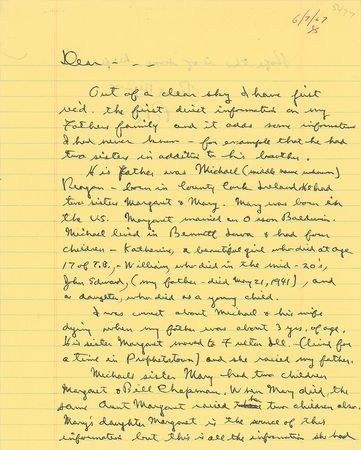 6/7/67
Dear, - -
Out of a clear sky I have just
rec'd. the first direct information on my
Fathers family and it adds some information
I had never known - for example that he had
two sisters in addition to his brother.
His father was Michael (middle name unknown)
Reagan - born in County Cork Ireland. He had
two sisters Margaret & Mary. Mary was born in
the US. Margaret married an Orson Baldwin.
Michael lived in Bennett, Iowa & had four
children - Katherine, a beautiful girl who died at age
17 of T.B., - William, who died in the mid - 20's,
John Edward, (my father - died May 21, 1941), and
a daughter, who died as a young child.
I was correct about Michael & his wife
dying when my father was about 3 yrs. of age.
His sister Margaret moved to Fulton Ill. - (lived for
a time in Prophetstown) and she raised my father.
Michaels sister Mary had two children
Margaret & Bill Chapman. When Mary died, the
same Aunt Margaret raised her two children also.
Mary's daughter Margaret is the source of this
information but this is all the information she had